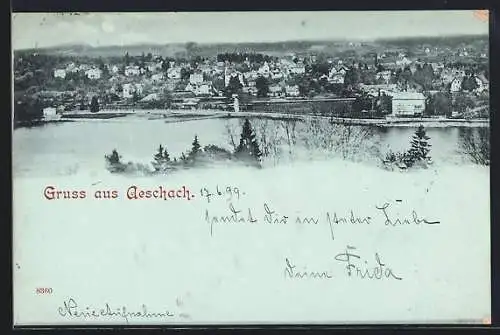 Gruss aus Aeschach. 17.6.99.
sendet Dir in steter Liebe
deine Frida
8360
Neue Aufnahme